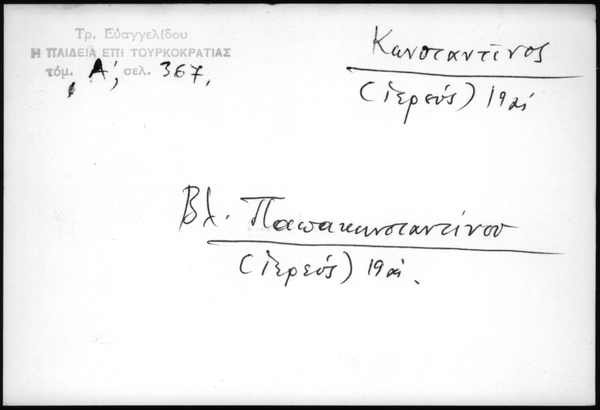 Τρ. Εὐαγγελίδου
Η ΠΑΙΔΕΙΑ ΕΠΙ ΤΟΥΡΚΟΚΡΑΤΙΑΣ
τόμ. Α΄, σελ. 367.
Κωνσταντῖνος
(ἱερεύς) 19 αἰ
Βλ. Παπακωνσταντίνου
(ἱερεύς) 19 αἰ.